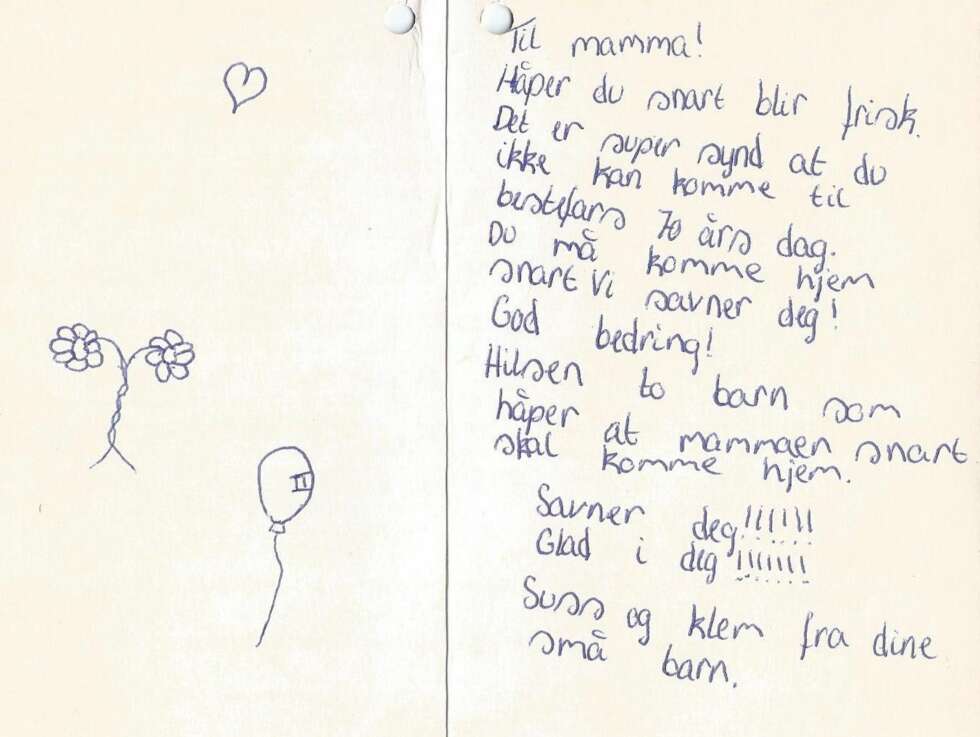 Til mamma!
Håper du snart blir frisk.
Det er super synd at du
ikke kan komme til
bestefars 70 års dag.
Du må komme hjem
snart Vi savner deg!
God bedring!
Hilsen to barn som
håper at mammaen snart
skal komme hjem.
Savner deg!!!!!!!
Glad i deg!!!!!!!
Suss og klem fra dine
små barn.